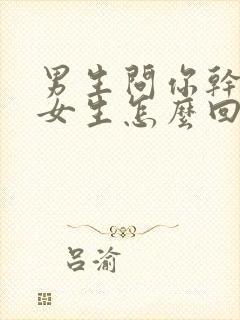 男生問你幹
女生怎麼回
呂渝